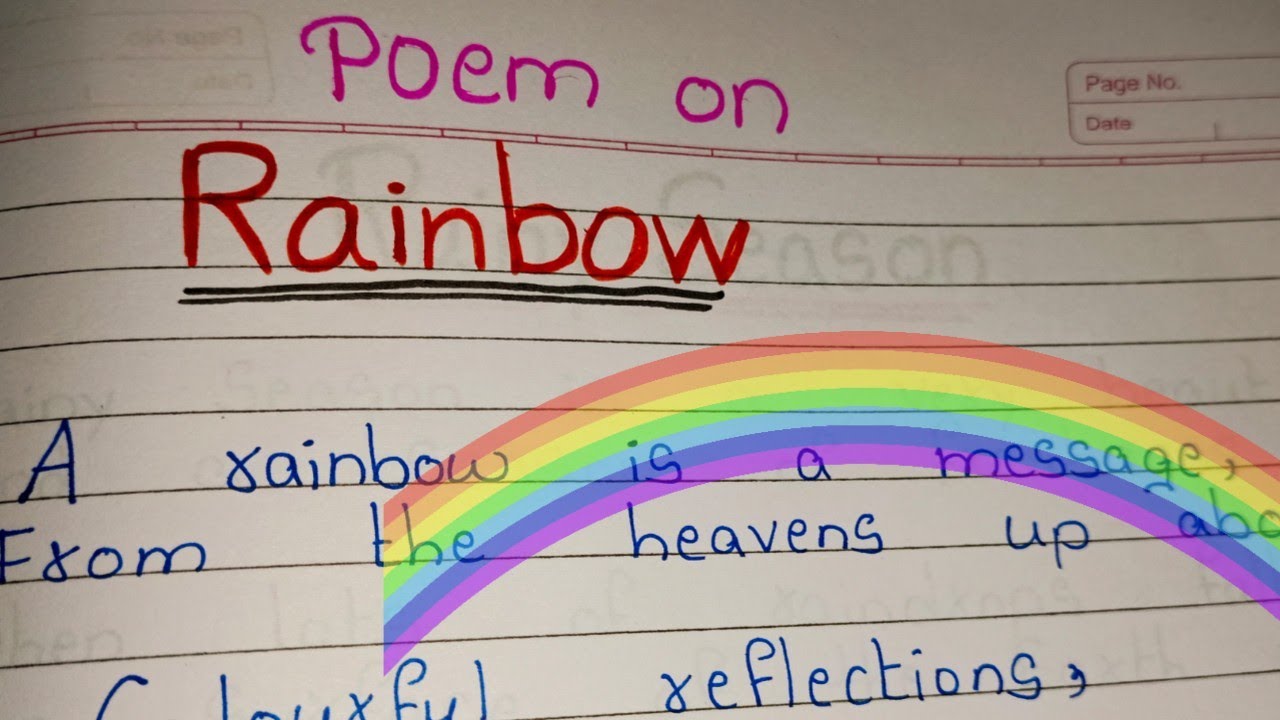 Poem on
Page No.
Date
Rainbow
A rainbow is a message,
From the heavens up abo
Colourful reflections,